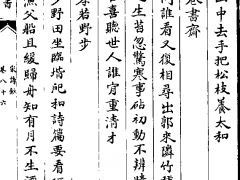 山中去手把松枝養太和
卷書齋
何誰看又復相尋出郭來隣竹
生昔忽驚寒事砧初動不辨
喜聽世人誰肯重清才
若野步
野田坐臨堦和詩篇要看
漁父船且緩歸舟知有月不生
卷八十六